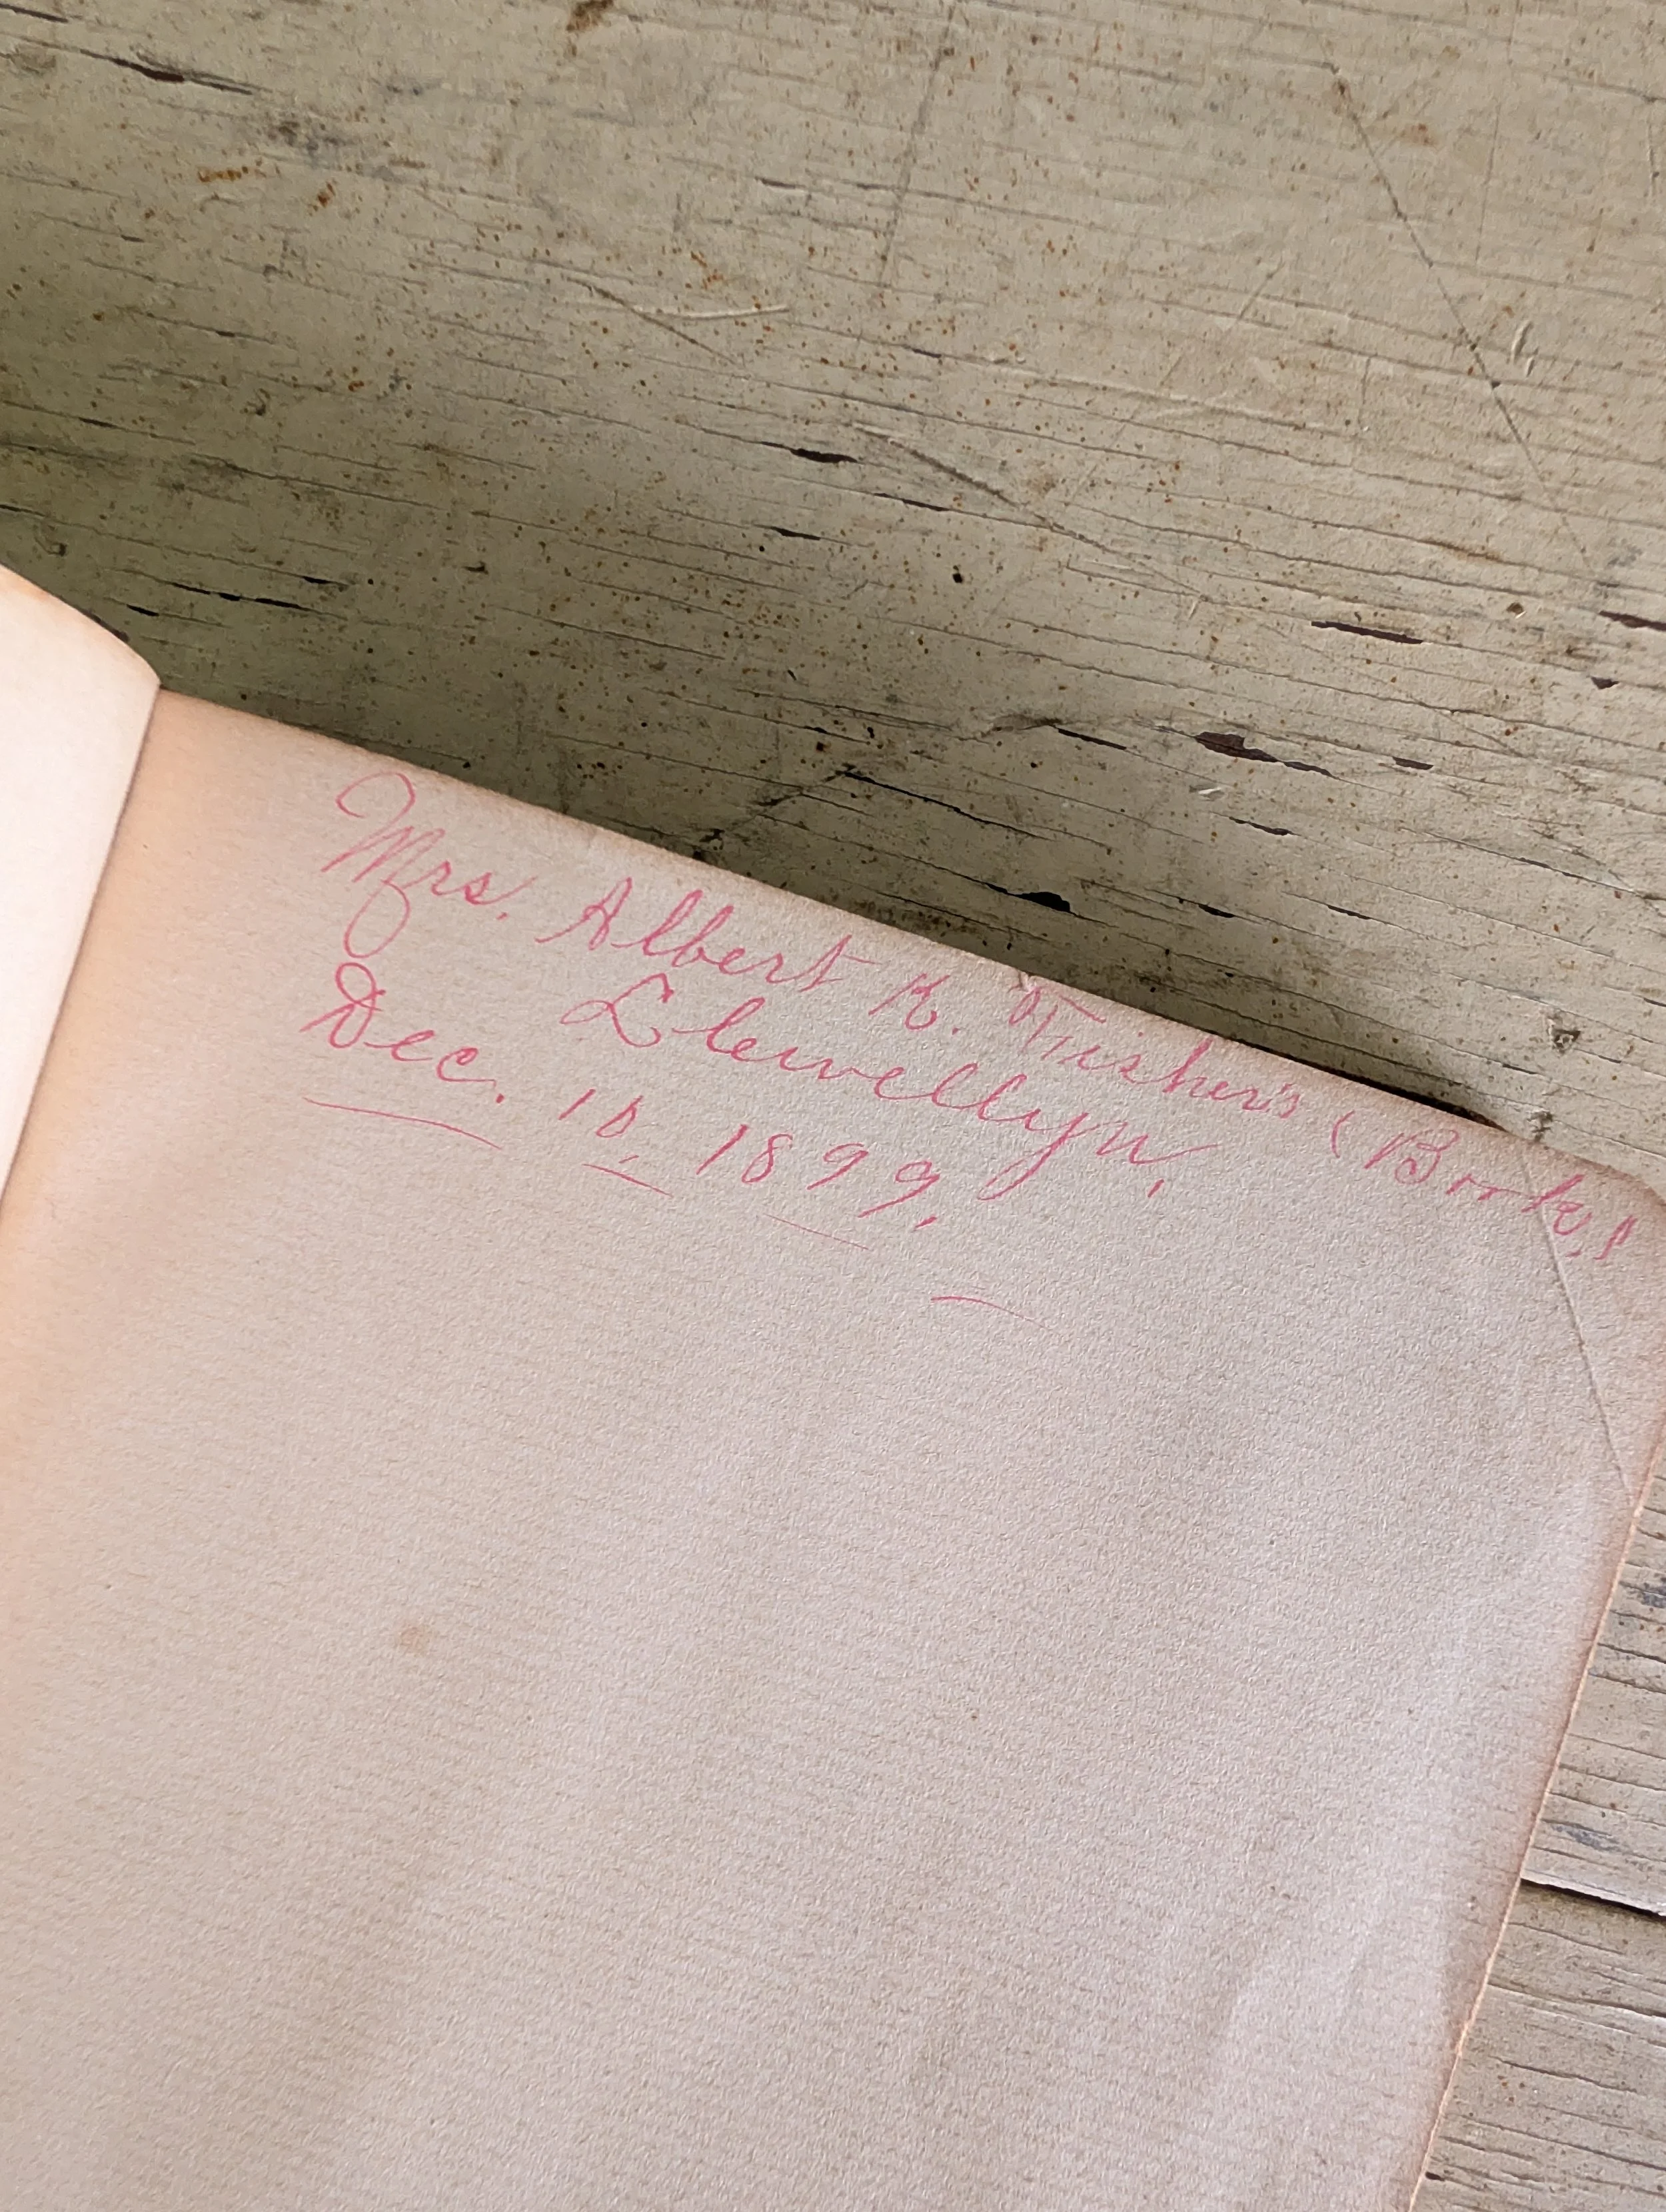 Mrs. Albert K. Fisher's (Book.)
Llewellyn.
Dec. 10, 1899.